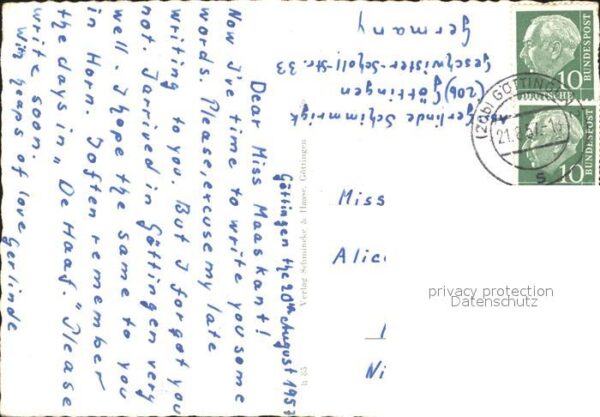 Göttingen the 20th August 1957
Dear Miss Maaskant!
Now I've time to write you some
words. Please, excuse my late
writing to you. But I forgot you
not. I arrived in Göttingen very
well. I hope the same to you
in Horn. I often remember
the days in "De Haaf." Please
write soon.
With heaps of love
Gerlinde
Gerlinde Schimmrigk
(20b) Göttingen
Geschwister-Scholl-Str. 33
Germany
Miss
Alice
Ni
h 85
Verlag Schmincke & Haase, Göttingen
10
DEUTSCHE
BUNDESPOST
10
BUNDESPOST
(20b) GÖTTINGEN
21.8.57
s
privacy protection
Datenschutz